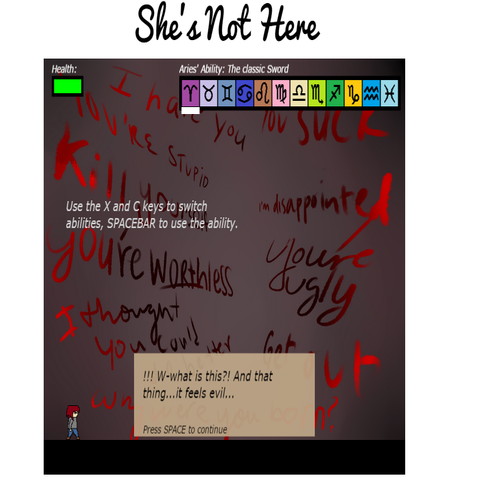 She's Not Here
Health:
Aries' Ability: The classic Sword
I hate you
YOU'RE STUPID
YOU SUCK
Kill yourself
I'm disappointed
Use the X and C keys to switch
abilities, SPACEBAR to use the ability.
You're worthless
You're
ugly
I thought
you could
Get out
!!! W-what is this?! And that
thing...it feels evil...
Press SPACE to continue